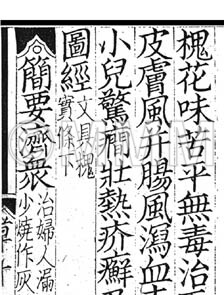 槐花味苦平無毒治五
皮膚風并腸風瀉血赤
小兒驚癇壯熱疥癬
圖經文具槐
實條下
簡要濟衆治婦人漏
少燒作灰